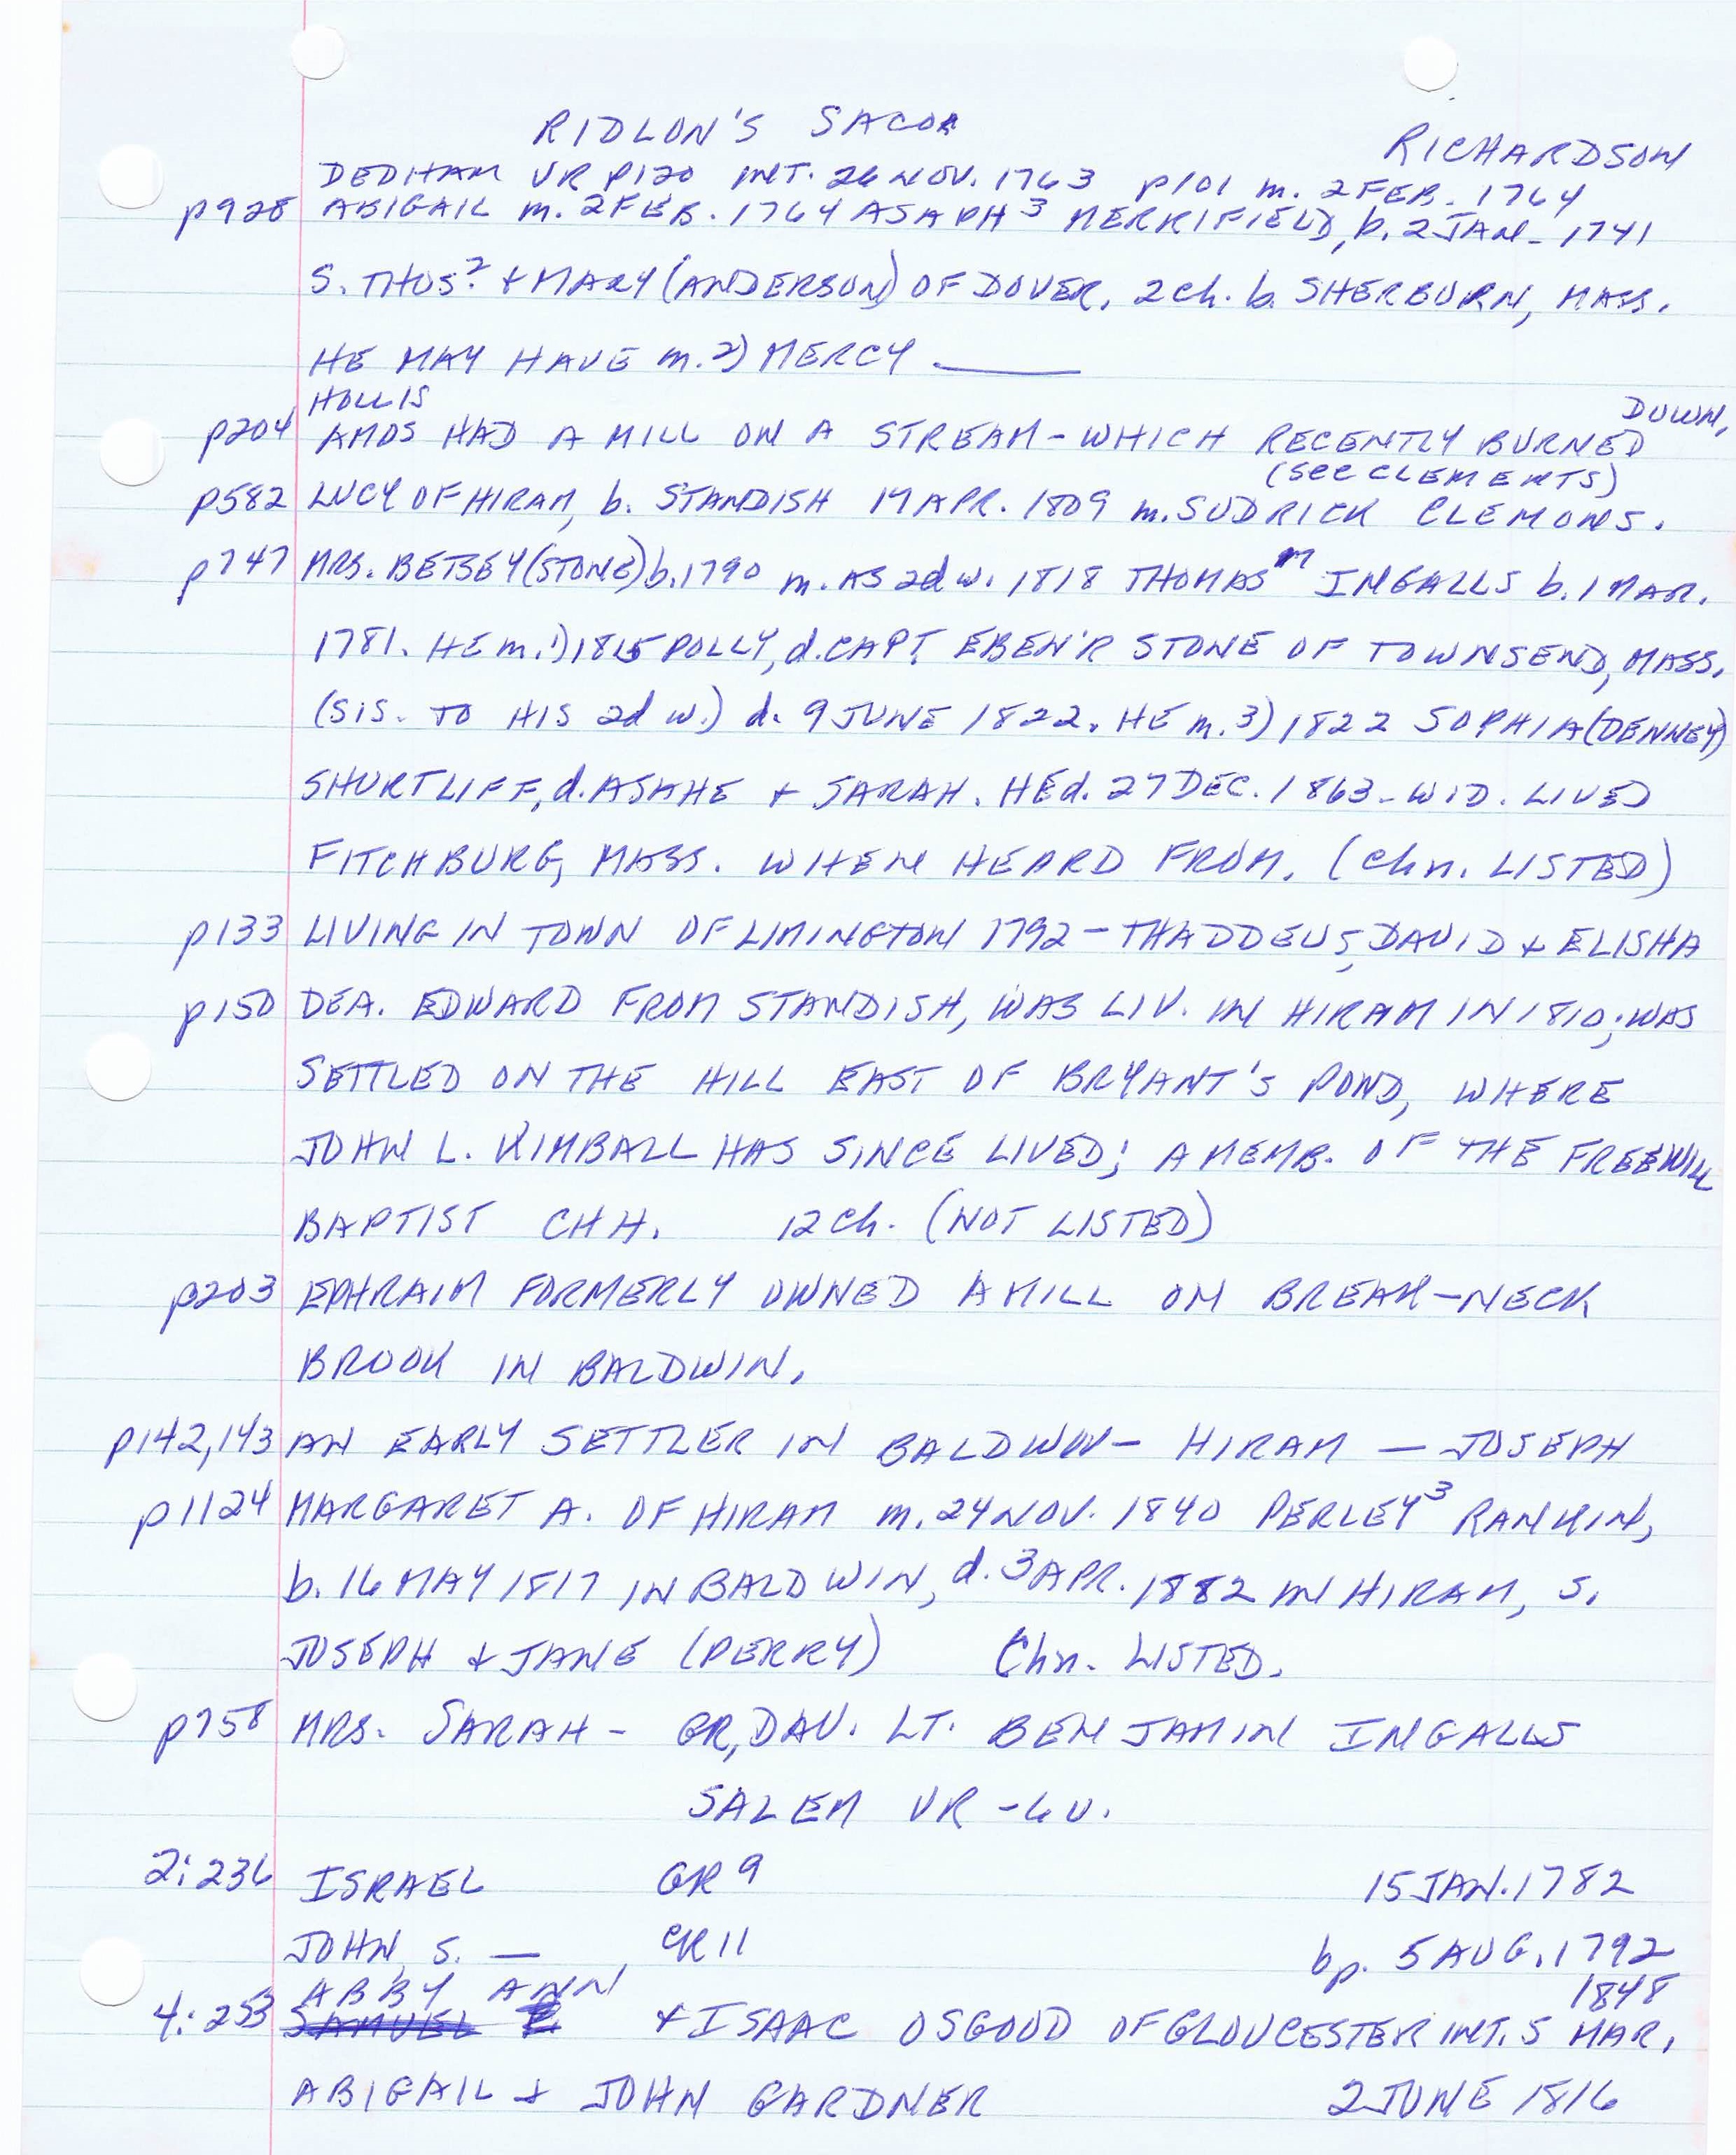 RIDLON'S SACO
RICHARDSON
DEDHAM VR P120 INT. 26 NOV. 1763 p101 m. 2 FEB. 1764
p928 ABIGAIL m. 2 FEB. 1764 ASAPH³ MERRIFIELD, b. 2 JAN. 1741
S. THOS.² + MARY (ANDERSON) OF DOVER. 2 ch. b. SHERBURN, MASS.
HE MAY HAVE m. 2) MERCY ____
HOLLIS
p204 AMOS HAD A MILL ON A STREAM - WHICH RECENTLY BURNED DOWN,
(SEE CLEMENTS)
p582 LUCY OF HIRAM, b. STANDISH 17 APR. 1809 m. SUDRICK CLEMONS.
p747 MRS. BETSEY (STONE) b. 1790 m. AS 2d w. 1818 THOMAS INGALLS b. 1 MAR.
1781. HE m. 1) 1815 POLLY, d. CAPT. EBEN'R STONE OF TOWNSEND, MASS.
(SIS. TO HIS 2d w.) d. 9 JUNE 1822. HE m. 3) 1822 SOPHIA (DENNEY)
SHURTLIFF, d. ASAHE + SARAH. HE d. 27 DEC. 1863 - WID. LIVED
FITCHBURG, MASS. WHEN HEARD FROM. (Chn. LISTED)
p133 LIVING IN TOWN OF LIMINGTON 1792 - THADDEUS, DAVID + ELISHA
p150 DEA. EDWARD FROM STANDISH, WAS LIV. IN HIRAM IN 1810; WAS
SETTLED ON THE HILL EAST OF BRYANT'S POND, WHERE
JOHN L. KIMBALL HAS SINCE LIVED; A MEMB. OF THE FREEWILL
BAPTIST CHH. 12 ch. (NOT LISTED)
p203 EPHRAIM FORMERLY OWNED A MILL ON BREAK-NECK
BROOK IN BALDWIN.
p142,143 AN EARLY SETTLER IN BALDWIN - HIRAM - JOSEPH
p1124 MARGARET A. OF HIRAM m. 24 NOV. 1840 PERLEY³ RANKIN,
b. 16 MAY 1817 IN BALDWIN, d. 3 APR. 1882 IN HIRAM, S.
JOSEPH + JANE (PERRY) Chn. LISTED.
p758 MRS. SARAH - GR, DAU. LT. BENJAMIN INGALLS
SALEM VR - 6 V.
2:236 ISRAEL GR 9 15 JAN. 1782
JOHN, S. — CR 11 bp. 5 AUG. 1792
ABBY ANN 1848
4:253 SAMUEL + ISAAC OSGOOD OF GLOUCESTER INT. 5 MAR,
ABIGAIL + JOHN GARDNER 2 JUNE 1816